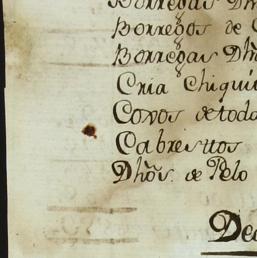 Borregas Dhã
Borregos de C
Borregas Dhõ
Cria Chiqui
Covos de toda
Cabresttos
Dhõs. de Pelo
Dec